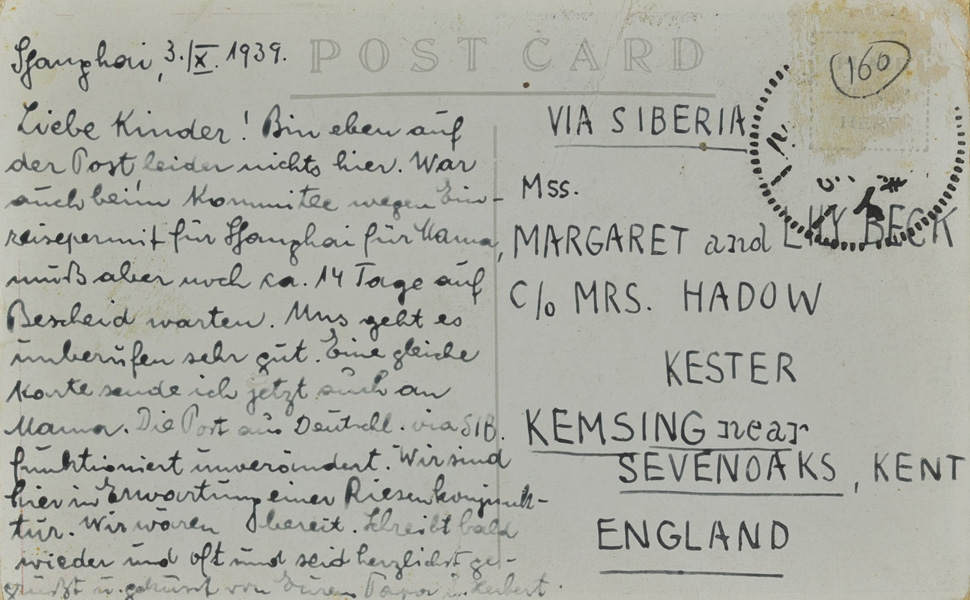 POST CARD
Shanghai, 3./X. 1939.
Liebe Kinder! Bin eben auf
der Post leider nichts hier. War
auch beim Kommitee wegen Ein-
reisepermit für Shanghai für Mama,
muß aber noch ca. 14 Tage auf
Bescheid warten. Uns geht es
unberufen sehr gut. Eine gleiche
Karte sende ich jetzt auch an
Mama. Die Post aus Deutschl. via SIB.
funktioniert unverändert. Wir sind
hier in Erwartung einer Riesenkonjunk-
tur. Wir wären bereit. Schreibt bald
wieder und oft und seid herzlichst ge-
grüßt u. geküsst von Eurem Papa u. Herbert.
160
HERE
VIA SIBERIA
Mss.
MARGARET and LILLY BECK
C/o MRS. HADOW
KESTER
KEMSING near
SEVENOAKS, KENT
ENGLAND